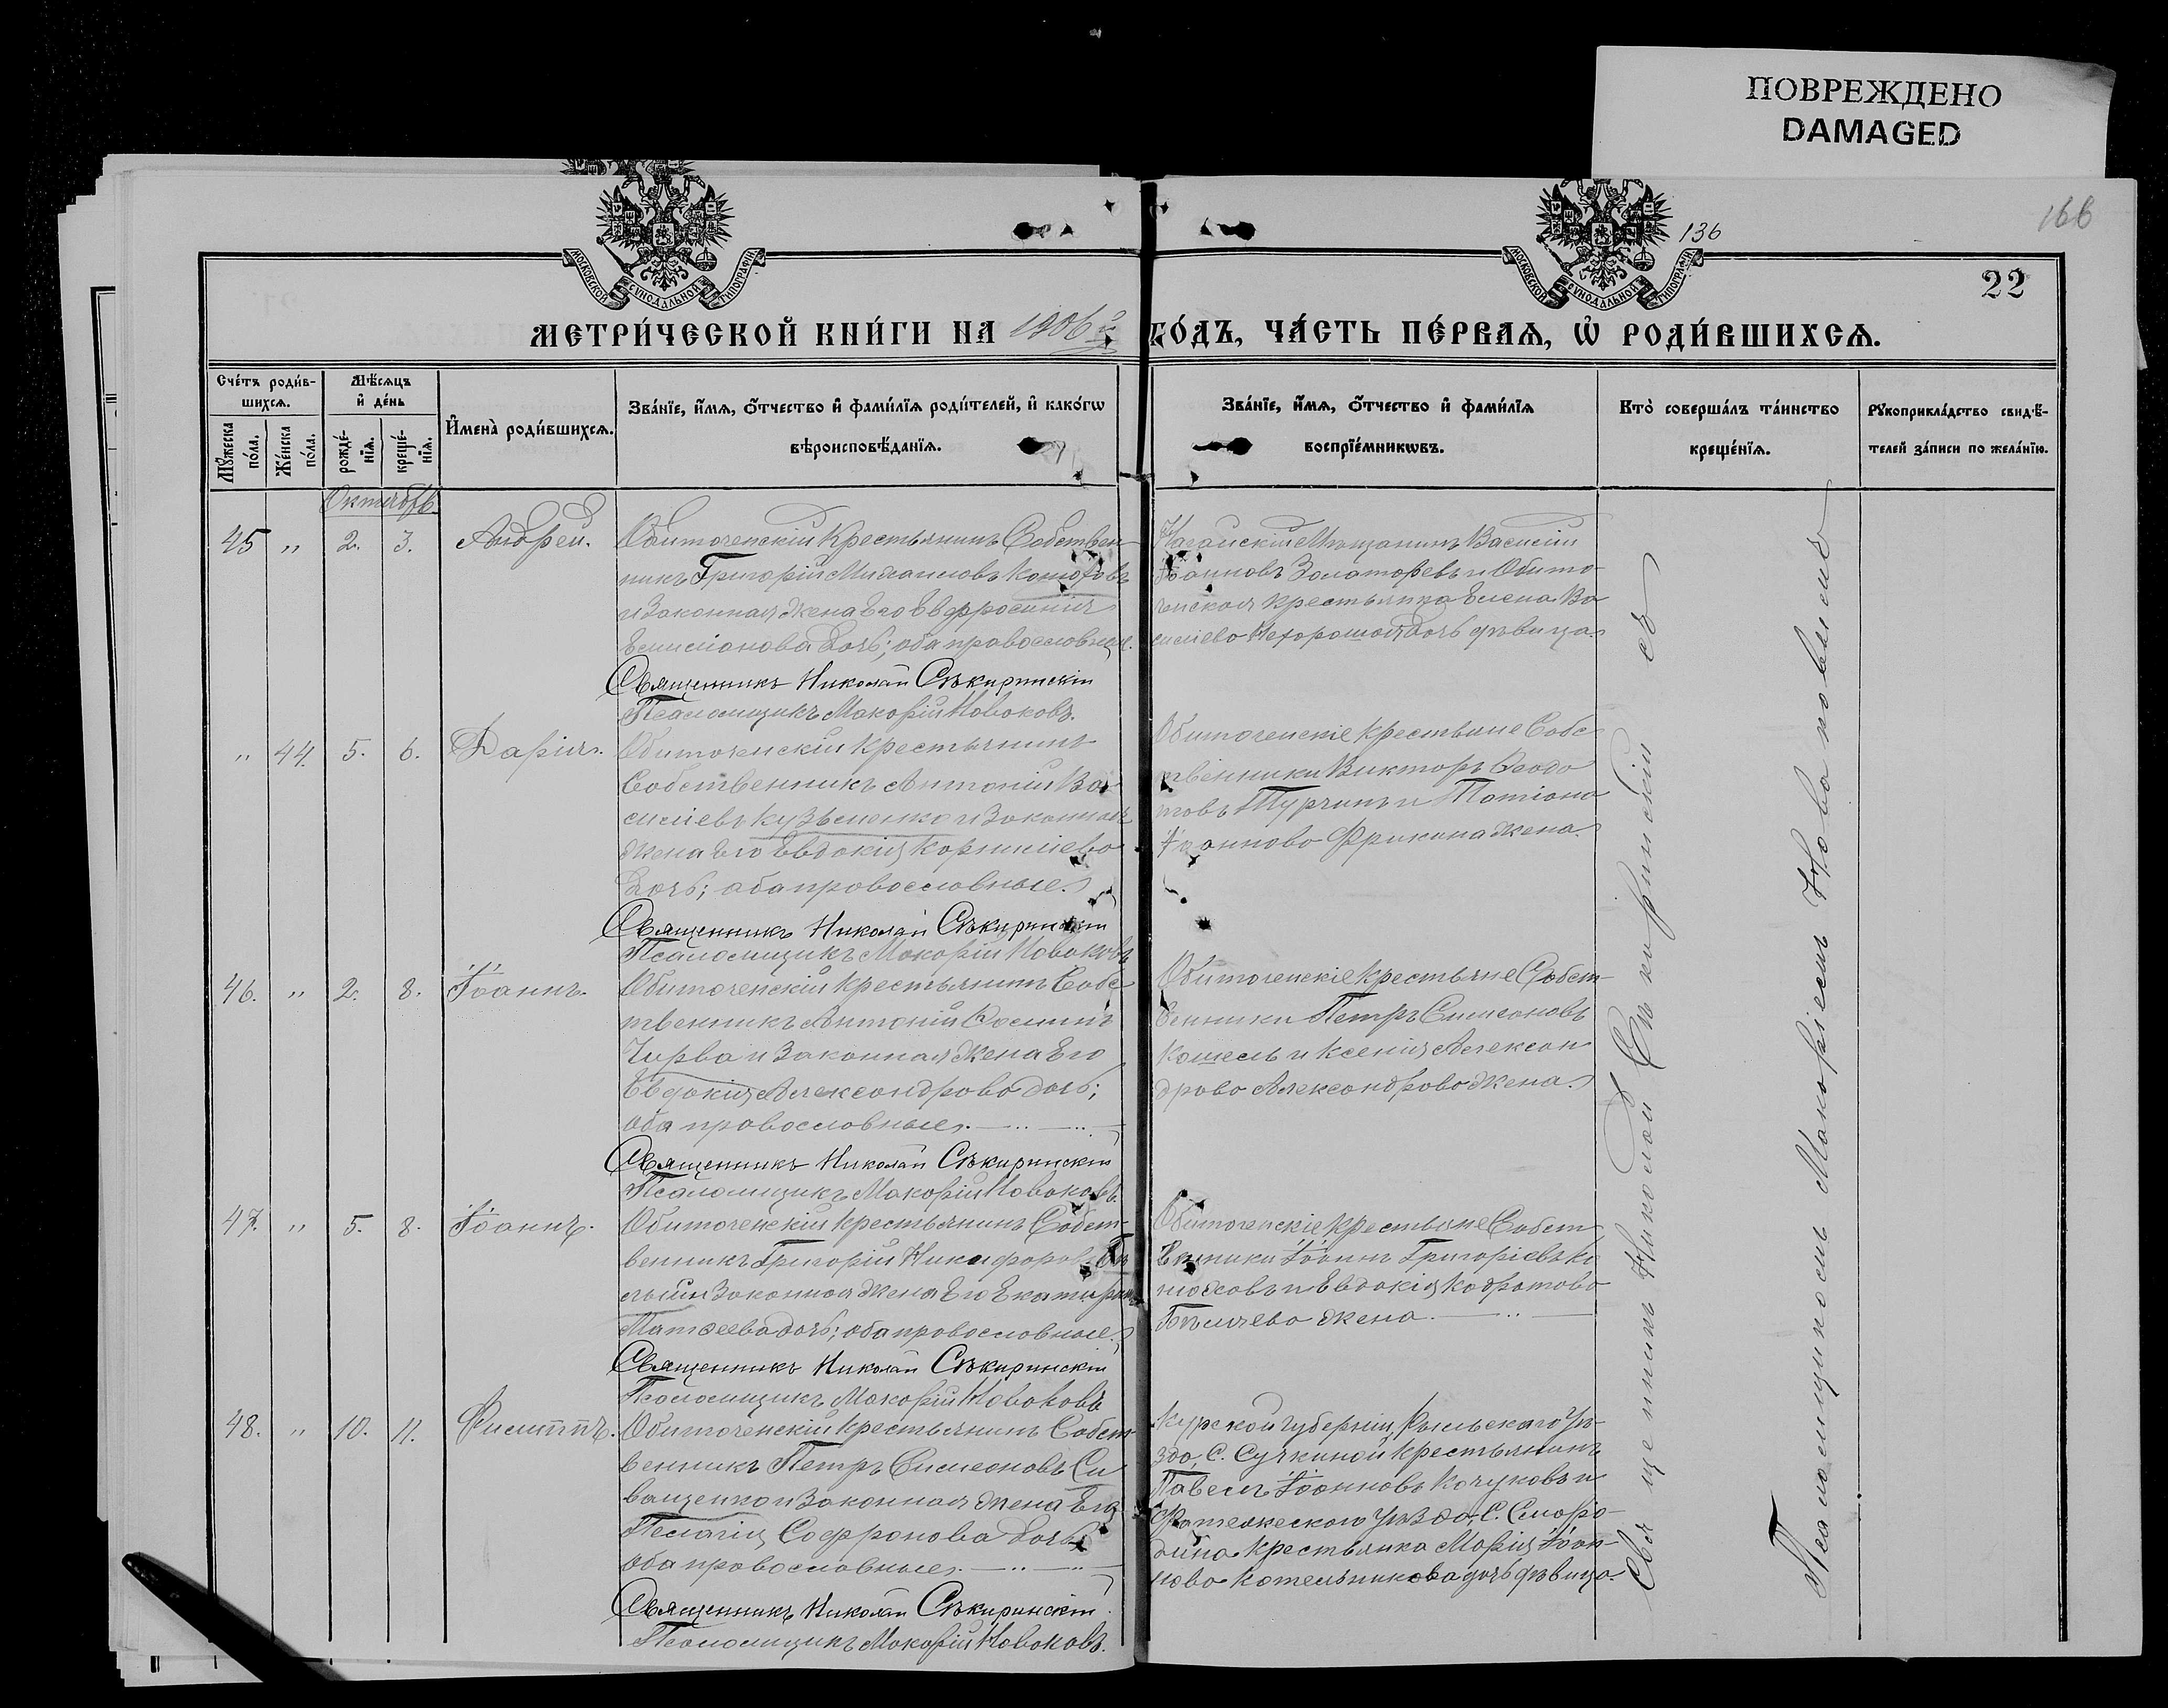 ПОВРЕЖДЕНО
DAMAGED
166
136
22
МОСКОВСКОЙ СѴНОДАЛЬНОЙ ТИПОГРАФІИ
МОСКОВСКОЙ СѴНОДАЛЬНОЙ ТИПОГРАФІИ
МЕТРИ́ЧЕСКОЙ КНИ́ГИ НА 1906й ГО́ДЪ, ЧА́СТЬ ПЕ́РВАѦ, Ѡ҆ РОДИ́ВШИХСѦ.
Сче́тъ роди́в-
шихсѧ.
Мꙋ́жеска по́ла.
Же́нска по́ла.
Мѣ́сѧцъ
и҆ де́нь
рожде́-
нїѧ.
креще́-
нїѧ.
И҆мена̀ роди́вшихсѧ.
Зва́нїе, и҆́мѧ, ѻ҆́тчество и҆ фами́лїѧ роди́телей, и҆ како́гѡ
вѣроисповѣ́данїѧ.
Зва́нїе, и҆́мѧ, ѻ҆́тчество и҆ фами́лїѧ
воспрїе́мникѡвъ.
Кто̀ соверша́лъ та́инство
креще́нїѧ.
Рꙋкоприкла́дство свидѣ́-
телей за́писи по жела́нїю.
Октябрь.
45 „ 2. 3. Андрей.
Обиточенскій Крестьянинъ Собствен-
никъ Григорій Михаиловъ
и Законная Жена Его Евфросинія
Емиліанова дочь; оба православные.
Священникъ Николай Сѣкиринскій
Псаломщикъ Макорій Новаковъ.
Ногайскій Мѣщанинъ Василій
Іоанновъ Золаторевъ и Обито-
ченская Крестьянка Елена Ва
силіева Нехорошая дочь дѣвица.
„ 44. 5. 6. Дарія.
Обиточенскій Крестьянинъ
Собственникъ Антоній Ва
силіевъ Кузьменко и Законная
Жена Его Евдокія Корниліева
Дочь; оба православные.
Священникъ Николай Сѣкиринскій
Псаломщикъ Макорій Новаковъ
Обиточенскіе Крестьяне Собс
твенники Викторъ Ѳеодо
товъ Турчинъ и Татіана
Іоаннова Фрикина Жена.
46. „ 2. 8. Іоаннъ.
Обиточенскій Крестьянинъ Собс
твенникъ Антоній
Чирва и Законная Жена Его
Евдокія Александрова дочь;
оба православные.
Священникъ Николай Сѣкиринскій
Псаломщикъ Макорій Новаковъ.
Обиточенскіе Крестьяне Собст-
венники Петръ Симеоновъ
Кошель и Ксенія Алексан
дрова Александрова Жена.
47. „ 5. 8. Іоаннъ.
Обиточенскій Крестьянинъ Собст-
венникъ Григорій Никифоровъ Бѣ
лый и Законная Жена Его
Матѳеева дочь; оба православные.
Священникъ Николай Сѣкиринскій
Псаломщикъ Макорій Новаковъ
Обиточенскіе Крестьяне Собст
венники Іоаннъ Григоріевъ
и Евдокія Кодратова
Бѣляева Жена.
48. „ 10. 11. Филиппъ.
Обиточенскій Крестьянинъ Собст
венникъ Петръ Симеоновъ Си
ващенко и Законная Жена Его
Пелагія Софронова дочь
оба православные.
Священникъ Николай Сѣкиринскій.
Псаломщикъ Макорій Новаковъ.
Курской губерніи, Рыльскаго Уѣ-
зда, С. Сучкиной Крестьянинъ
Павелъ Іоанновъ Качуковъ и
Фатежескаго Уѣзда, С. Сморо-
дина Крестьянка Марія Іоан-
нова Котельникова дочь дѣвица.
Священникъ Николай Сѣкиринскій съ
Псаломщикомъ Макоріемъ Новаковымъ